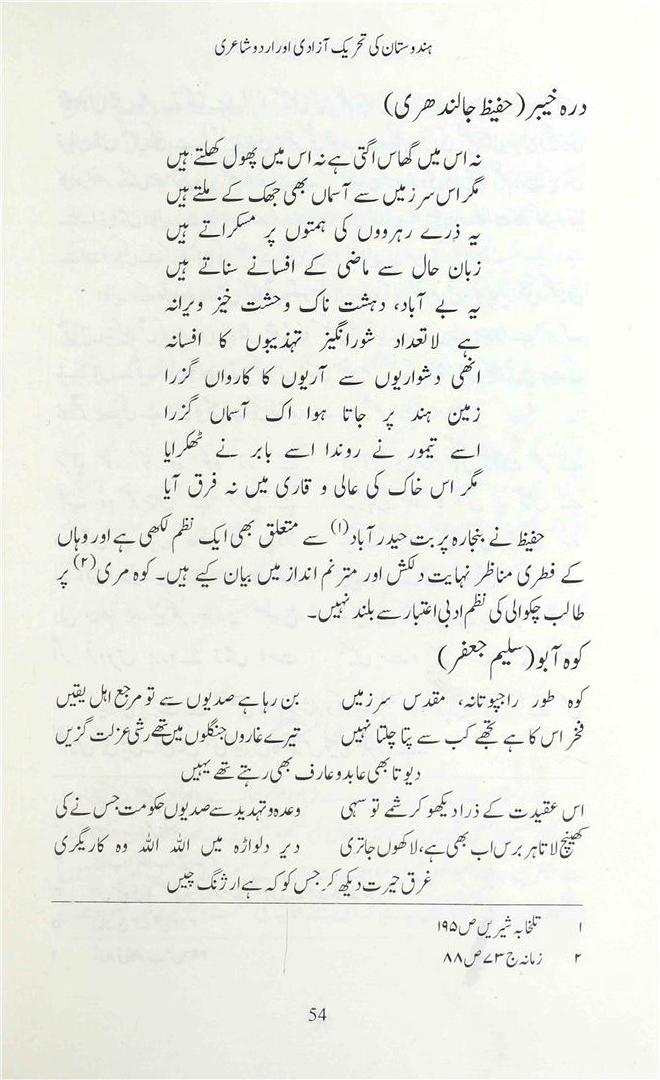 ہندوستان کی تحریک آزادی اور اردو شاعری
درہ خیبر (حفیظ جالندھری)
نہ اس میں گھاس اگتی ہے نہ اس میں پھول کھلتے ہیں
مگر اس سرزمیں سے آسماں بھی جھک کے ملتے ہیں
یہ ذرے رہرووں کی ہمتوں پر مسکراتے ہیں
زبان حال سے ماضی کے افسانے سناتے ہیں
یہ بے آباد، دہشت ناک وحشت خیز ویرانہ
ہے لاتعداد شورانگیز تہذیبوں کا افسانہ
انھی دشواریوں سے آریوں کا کارواں گزرا
زمین ہند پر جاتا ہوا اک آسماں گزرا
اسے تیمور نے روندا اسے بابر نے ٹھکرایا
مگر اس خاک کی عالی و قاری میں نہ فرق آیا
حفیظ نے بنجارہ پربت حیدر آباد(۱) سے متعلق بھی ایک نظم لکھی ہے اور وہاں
کے فطری مناظر نہایت دلکش اور مترنم انداز میں بیان کیے ہیں۔ کوہ مری(۲) پر
طالب چکوالی کی نظم ادبی اعتبار سے بلند نہیں۔
کوہ آبو (سلیم جعفر)
کوہ طور راجپوتانہ، مقدس سرزمیں بن رہا ہے صدیوں سے تو مرجع اہل یقیں
فخر اس کا ہے تجھے کب سے پتا چلتا نہیں تیرے غاروں جنگلوں میں تھے رشی عزلت گزیں
دیوتا بھی عابد و عارف بھی رہتے تھے یہیں
اس عقیدت کے ذرا دیکھو کرشمے تو سہی وعدہ و تہدید سے صدیوں حکومت جس نے کی
کھینچ لاتا ہر برس اب بھی ہے، لاکھوں جاتری دیر دلواڑہ میں اللہ اللہ وہ کاریگری
غرق حیرت دیکھ کر جس کو کہ ہے ارژنگ چیں
۱ تلخابہ شیریں ص ۱۹۵
۲ زمانہ ج ۷۳ ص ۸۸
54